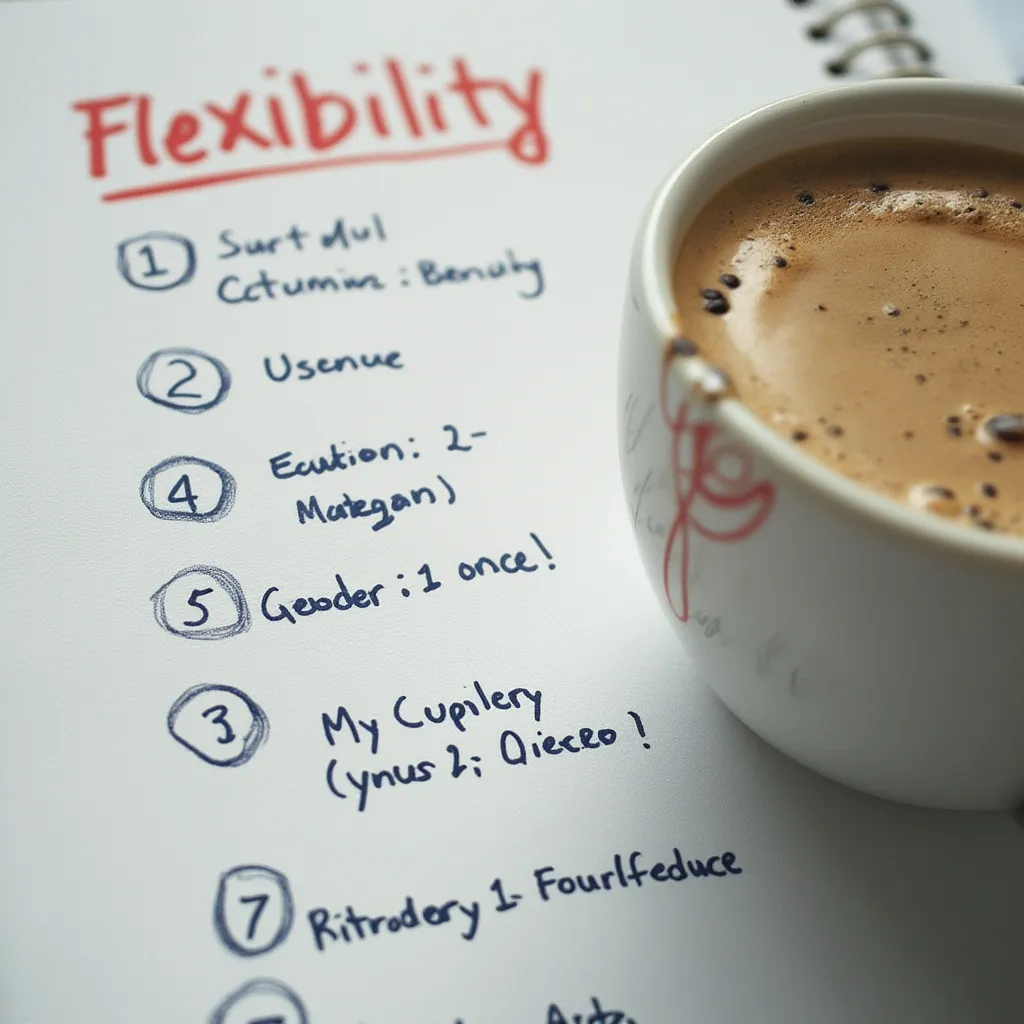 Flexibility
1 Surt dul
Cctumin : Benuity
2 Usenue
4 Ecution: 2-
Mategan)
5 Geoder : 1 once!
3 My Cupilery
(ynus 2; Qieceo !
7 Ritrodery 1- Fourlfeduce